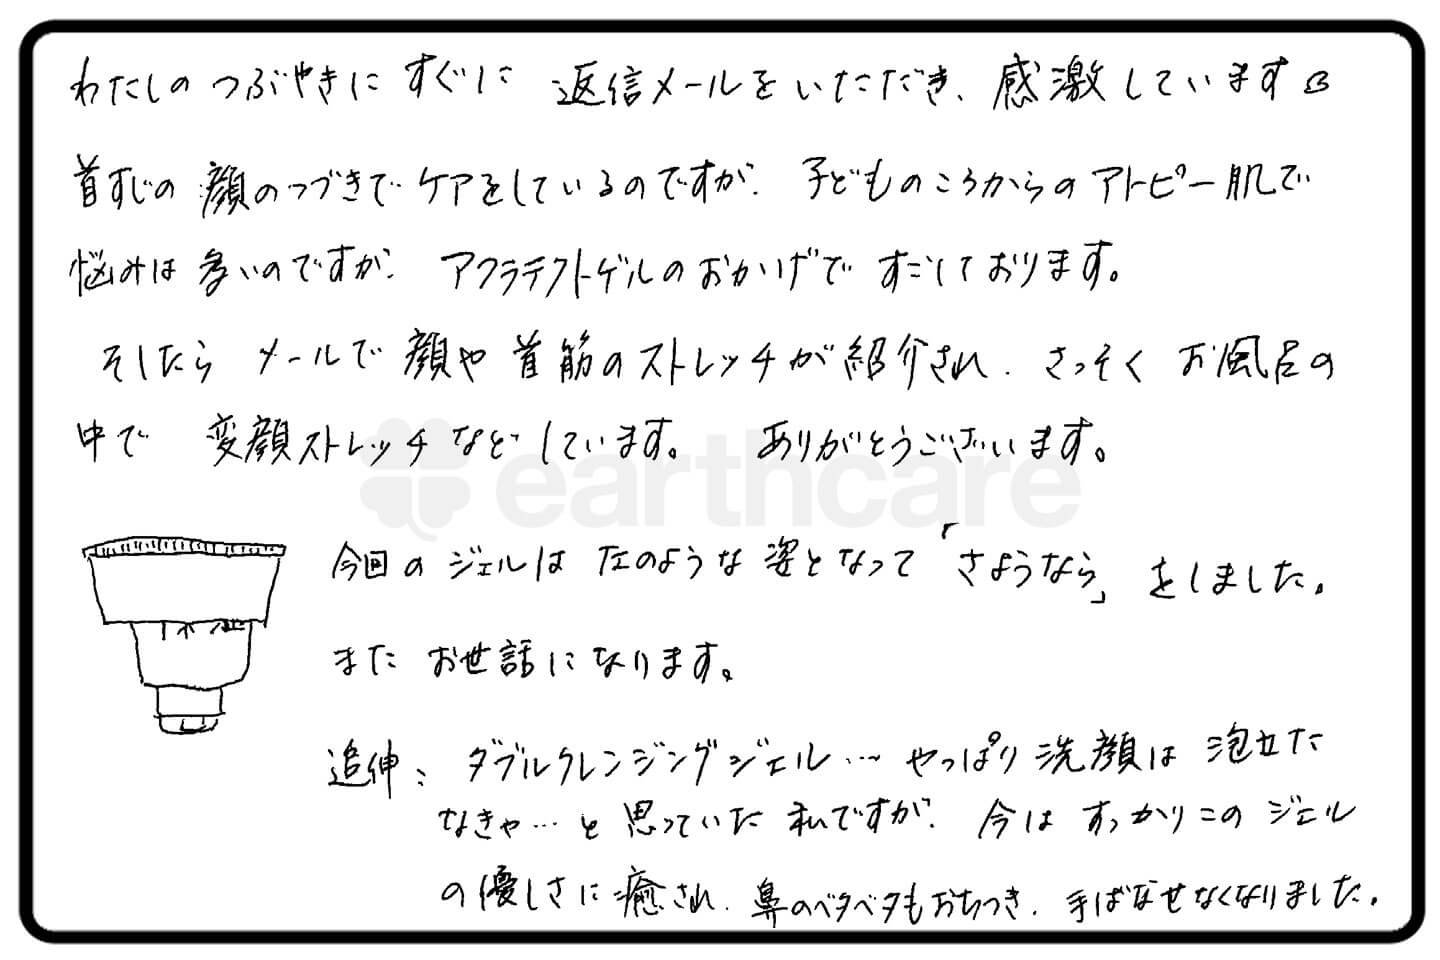 わたしのつぶやきに すぐに 返信メールをいただき、感激しています
首すじの 顔のつづきで ケアをしているのですが、子どものころからのアトピー肌で
悩みは 多いのですが、アクラテクトゲルのおかげで すごしております。
そしたら メールで 顔や 首筋のストレッチが紹介され、さっそく お風呂の
中で 変顔ストレッチなどしています。 ありがとうございます。
earthcare
今回の ジェルは 左のような 姿となって「さようなら」をしました。
また お世話になります。
追伸: ダブルクレンジングジェル… やっぱり 洗顔は 泡立た
なきゃ…と 思っていた 私ですが、今は すっかりこの ジェル
の優しさに 癒され、鼻のベタベタもおちつき、手ばなせなくなりました。